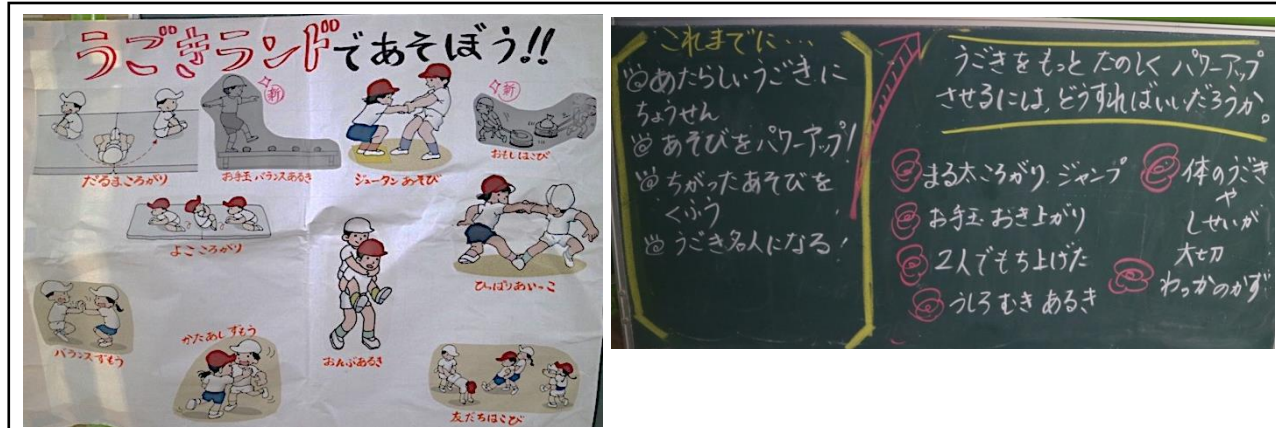 うごきランドであそぼう!!
だるまころがり
新
お手玉バランスあるき
ジュータンあそび
新
おもしはこび
よこころがり
ひっぱりあいっこ
バランスずもう
かたあしずもう
おんぶあるき
友だちはこび
これまでに…
あたらしいうごきに
ちょうせん
あそびをパワーアップ!
ちがったあそびを
くふう
うごき名人になる!
うごきをもっとたのしくパワーアップ
させるには、どうすればいいだろうか。
まる太ころがり ジャンプ
お手玉 おき上がり
2人でもち上げた
うしろむきあるき
体のうごき
や
しせいが
大切
わっかのかず